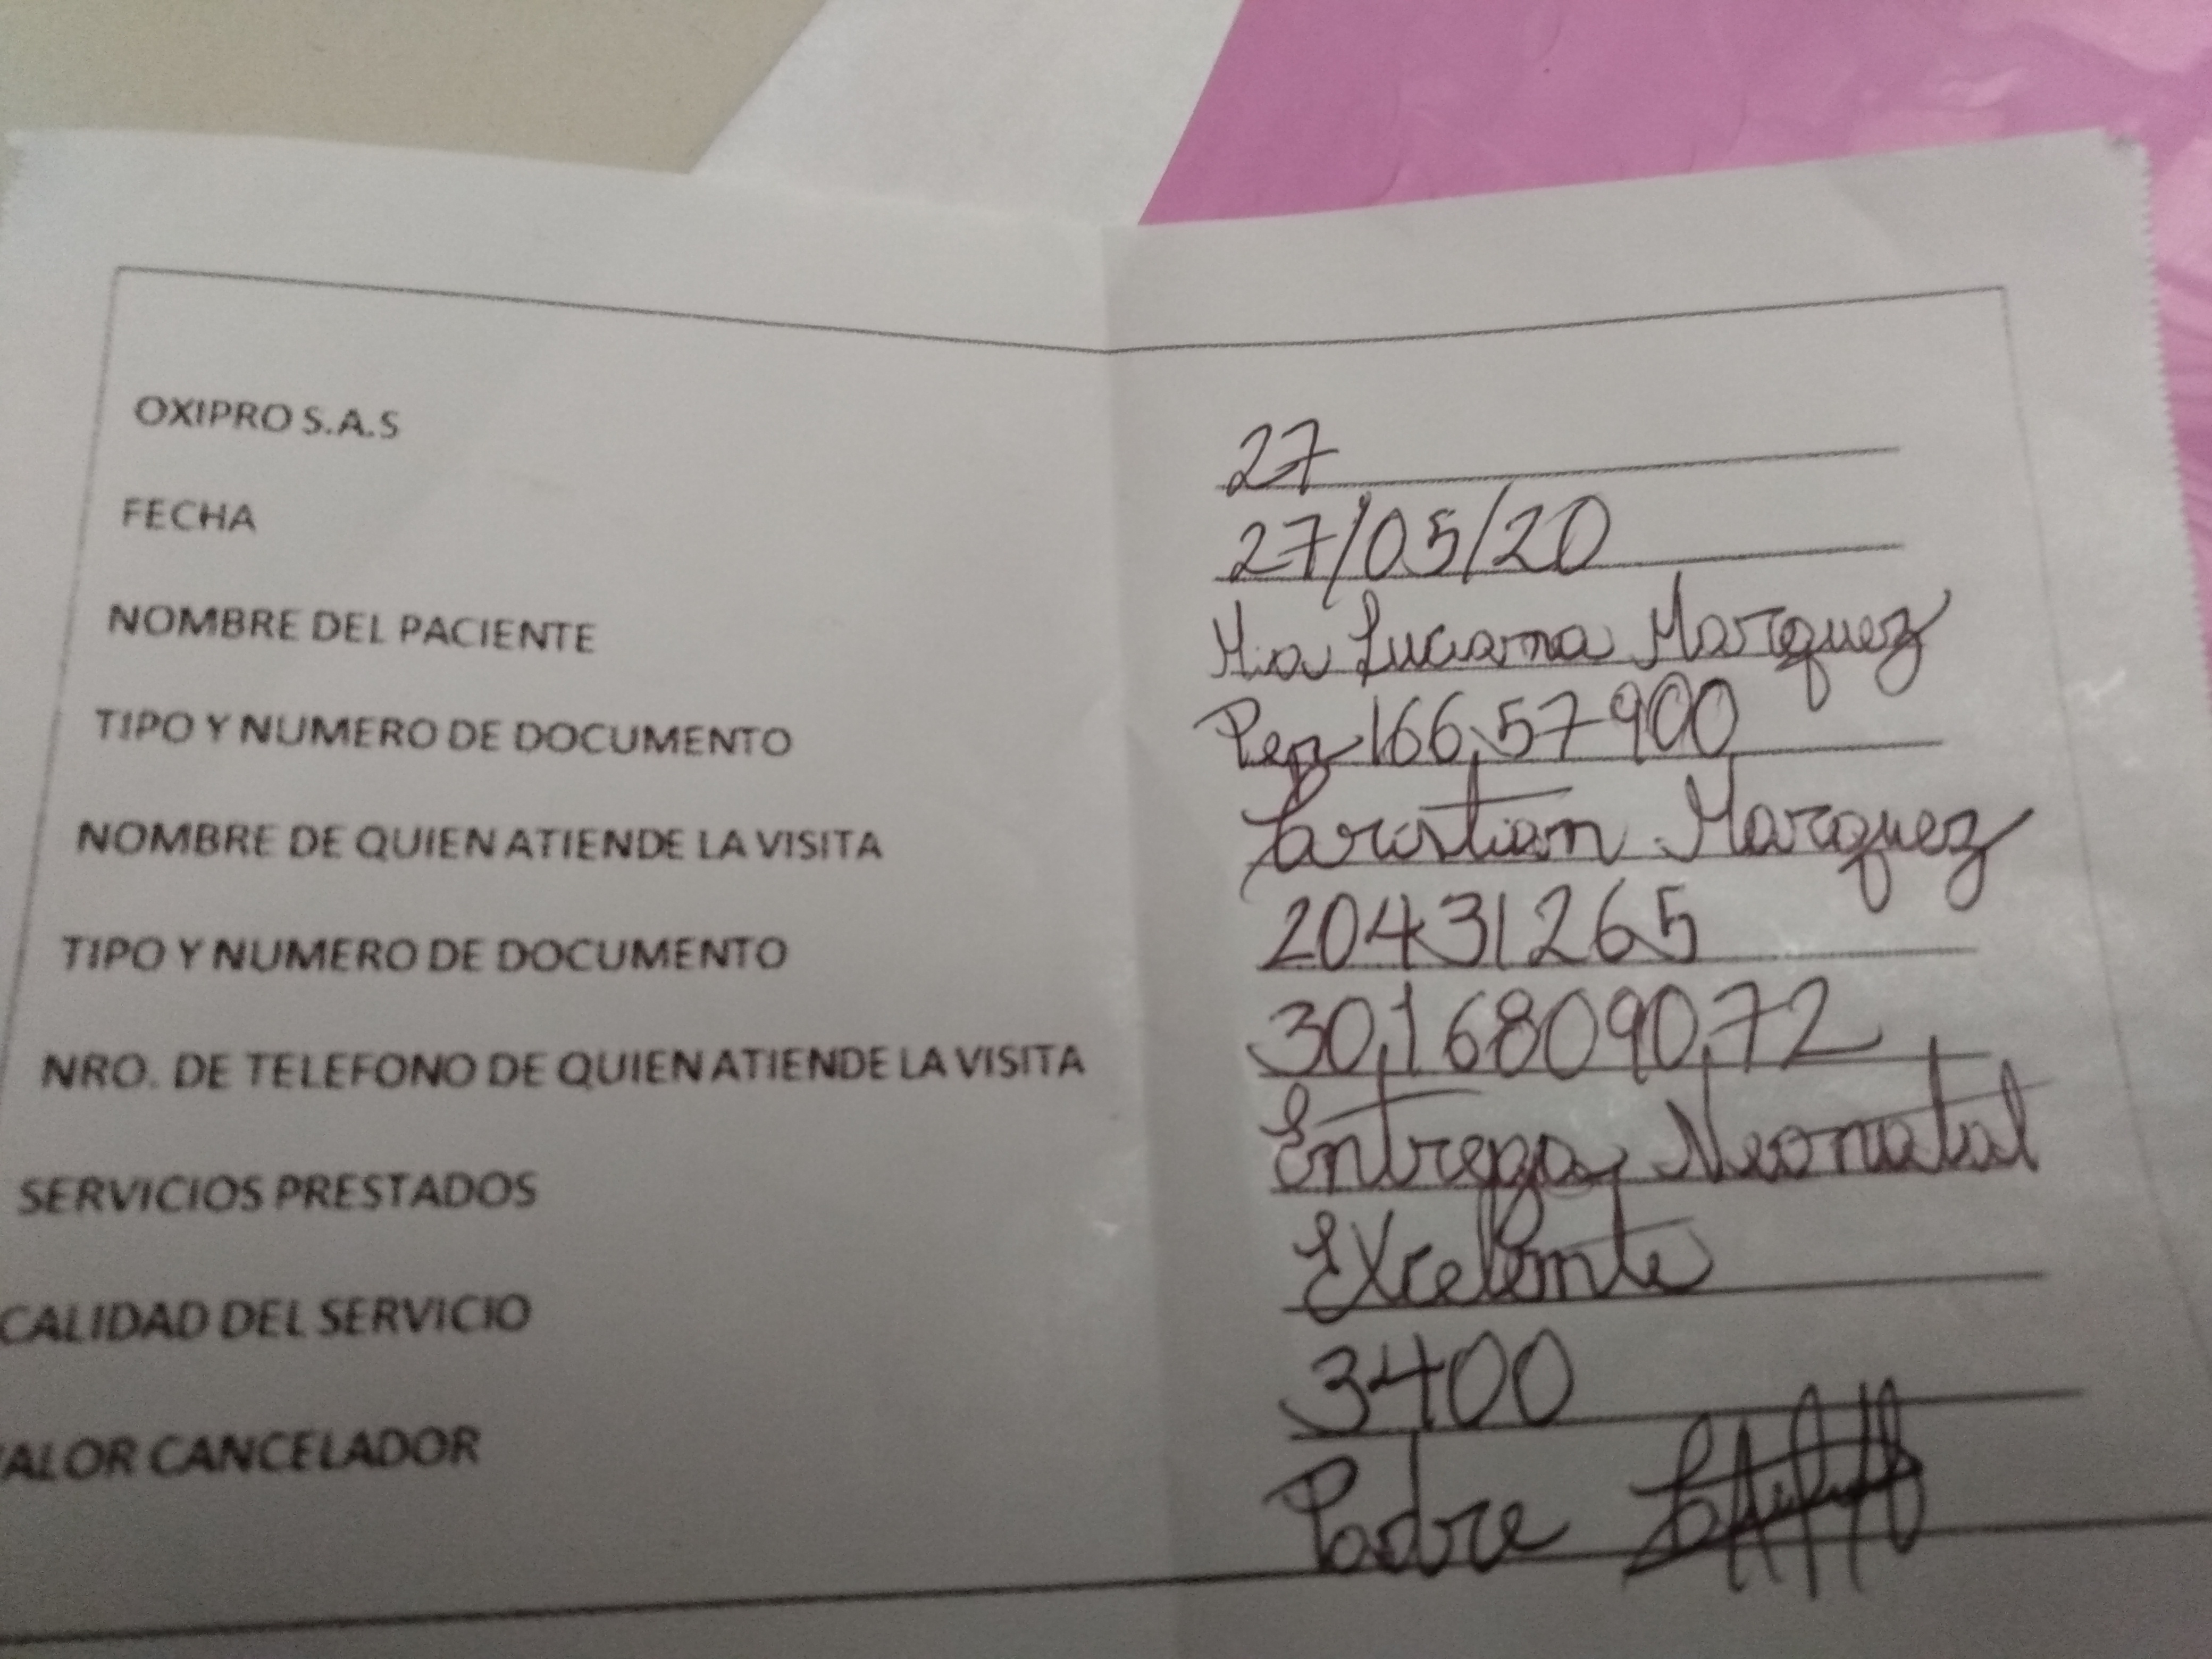 OXIPRO S.A.S 27
FECHA 27/05/20
NOMBRE DEL PACIENTE Mia Luciana Marquez
TIPO Y NUMERO DE DOCUMENTO Pep 166.57900
NOMBRE DE QUIEN ATIENDE LA VISITA Cristian Marquez
TIPO Y NUMERO DE DOCUMENTO 20431265
NRO. DE TELEFONO DE QUIEN ATIENDE LA VISITA 3016809072
SERVICIOS PRESTADOS Entrega Neonatal
CALIDAD DEL SERVICIO Excelente
ALOR CANCELADOR 3400
Padre